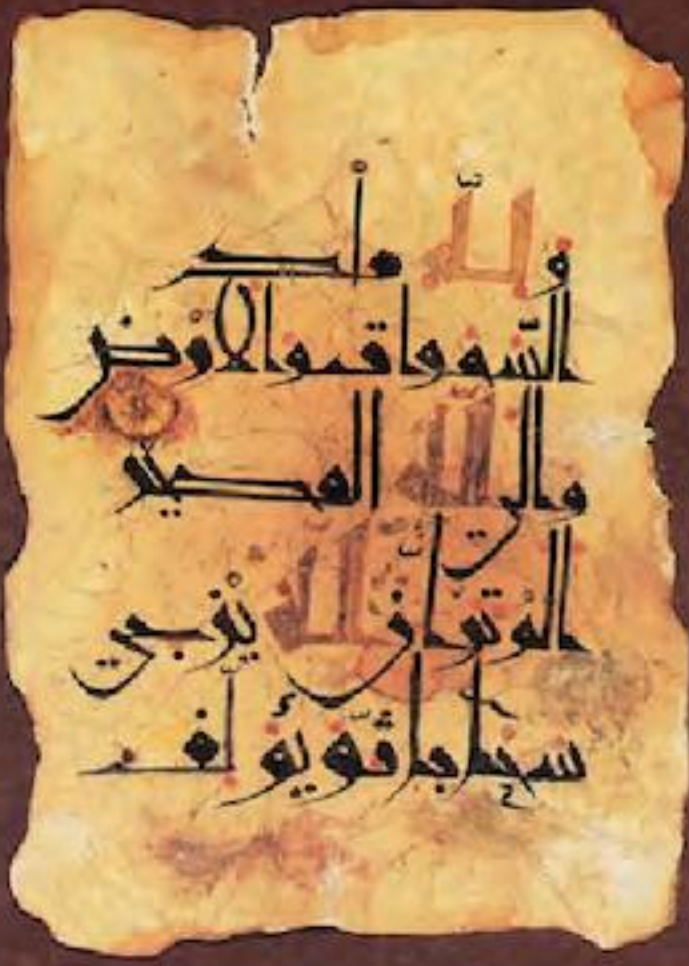 ولله ملك
السموات والأرض
والى الله المصير
الم تر أن الله يزجي
سحابا ثم يؤلف